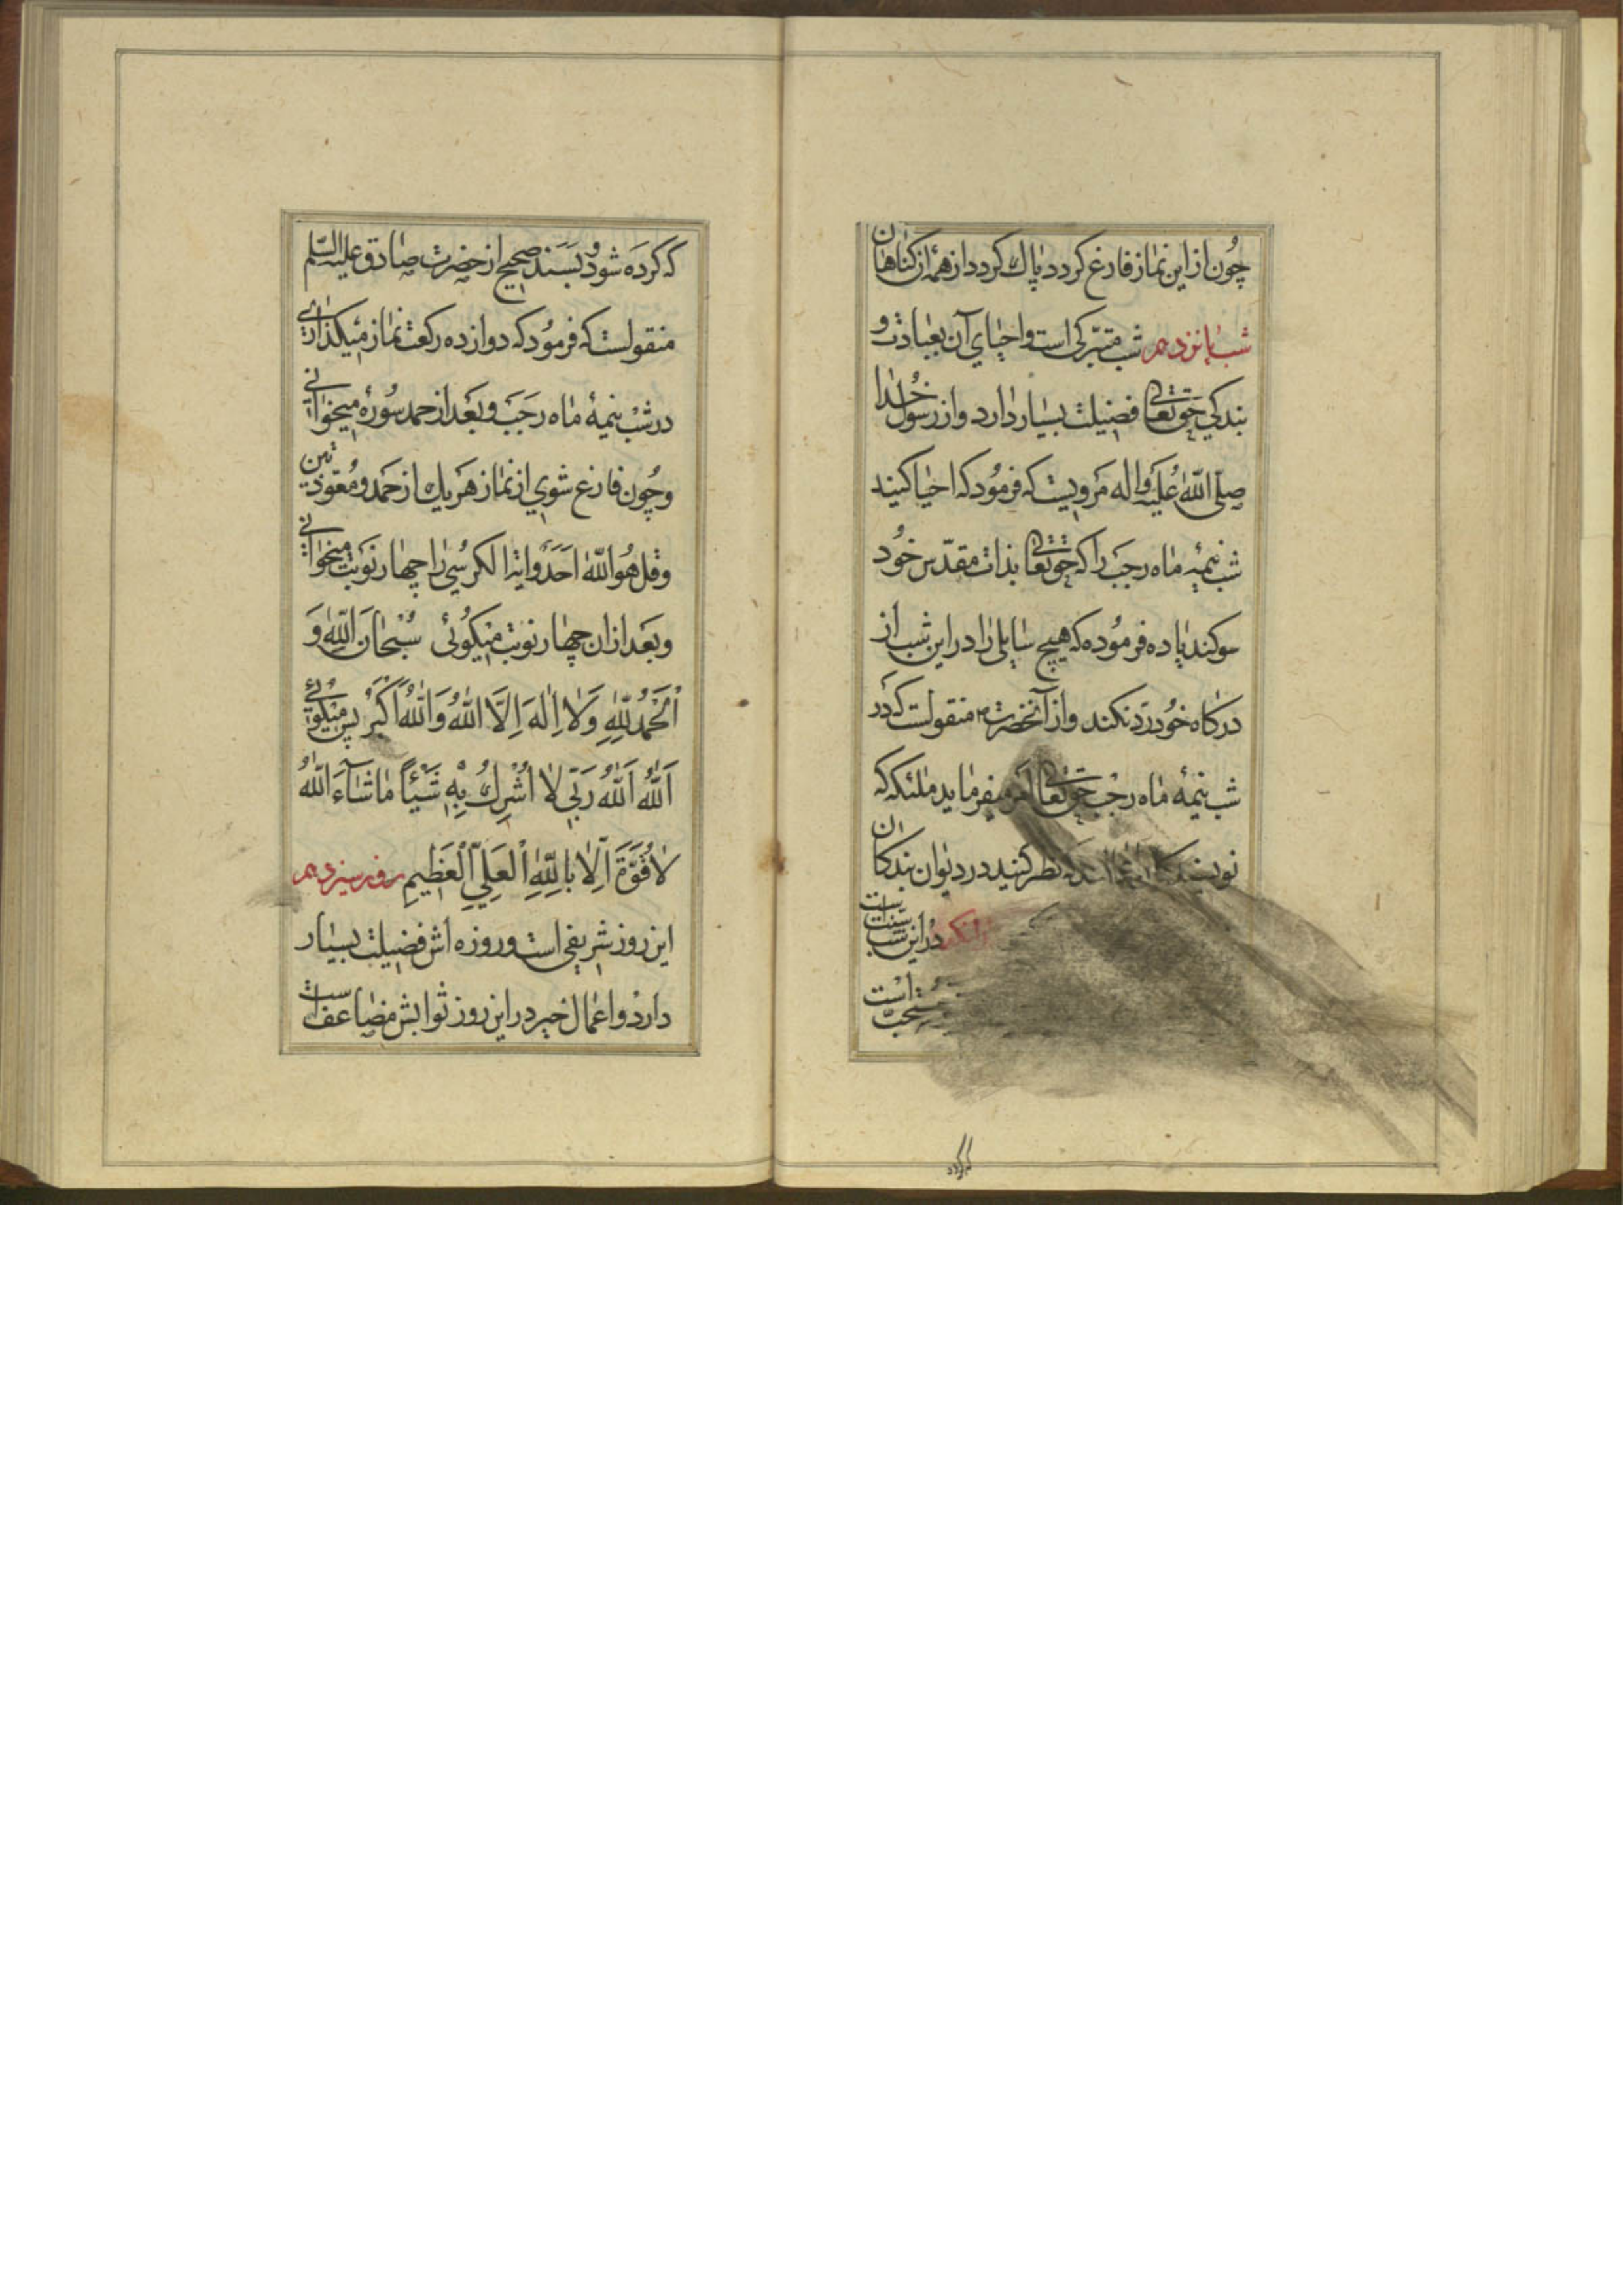 چون از این نماز فارغ کردد پاك کردد از همه از کناهان
شب پانزدهم شب متبرّکی است و احیای آن بعبادت و
بندکی حق تعالی فضیلت بسیار دارد و از رسول خُدا
صلّی اللّه علیه و اله مرویست که فرمود که احیا کنید
شب نیمهٔ ماه رجب را که حق تعالی بذات مقدّس خود
سوکند یاد فرموده که هیچ سایلی را در این شب از
درکاه خود رد نکند و از آنحضرت منقولست که در
شب نیمهٔ ماه رجب حق تعالی امر میفرماید ملئکه که
نویسندکان نظر کنید در دیوان بندکان
در این شب سنت است
مستحبّ است
که کرده
که کرده شود و بسند صحیح از حضرت صادق علیه السّلم
منقولست که فرمود که دوازده رکعت نماز میکذاری
در شب نیمهٔ ماه رجب و بعد از حمد سورهٔ میخوانی
و چون فارغ شوی از نماز هر یك از حمد و معوّذتین
و قل هو اللّه احد و ایة الکرسی را چهار نوبت میخوانی
و بعد از ان چهار نوبت میکوئی سُبْحَانَ اللّهِ وَ
اَلْحَمْدُ لِلّٰهِ وَلَا اِلٰهَ اِلَّا اللّٰهُ وَاللّٰهُ اَکْبَرُ پس میکوئی
اَللّٰهُ اَللّٰهُ رَبّی لَا اُشْرِكُ بِهِ شَیْئًا مَا شَآءَ اللّٰهُ
لَا قُوَّةَ اِلَّا بِاللّٰهِ الْعَلِیِّ الْعَظِیمِ روز سیزدهم
این روز شریفی است و روزه اش فضیلت بسیار
دارد و اعمال خیر در این روز ثوابش مضاعف است